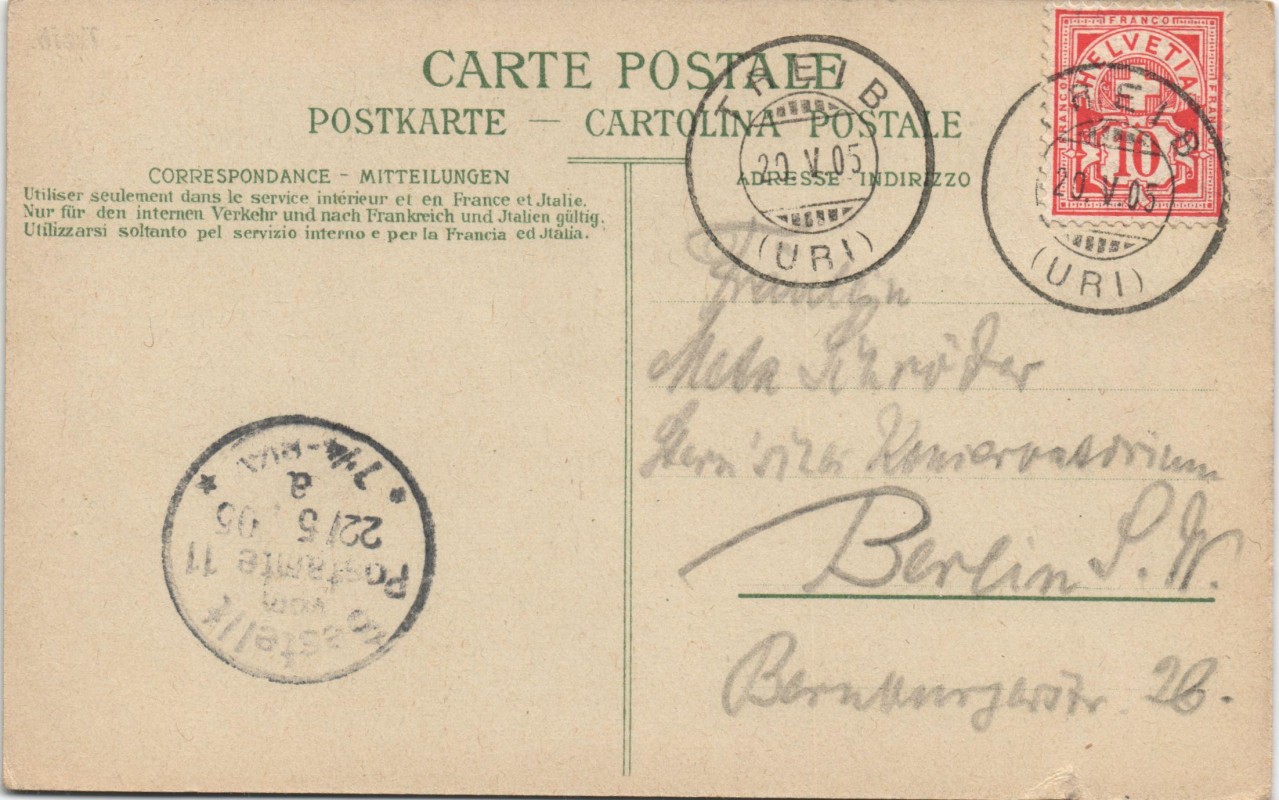 Treib.
CARTE POSTALE
POSTKARTE — CARTOLINA POSTALE
CORRESPONDANCE - MITTEILUNGEN
Utiliser seulement dans le service intérieur et en France et Jtalie.
Nur für den internen Verkehr und nach Frankreich und Jtalien gültig.
Utilizzarsi soltanto pel servizio interno e per la Francia ed Jtalia.
ADRESSE - INDIRIZZO
TREIB
20.V.05
(URI)
FRANCO
FRANCO
FRANCO
HELVETIA
10
TREIB
20.V.05
(URI)
Fräulein
Meta Schröder
Stern'sches Konservatorium
Berlin S.W.
Bernburgerstr 26.
Bestellt
vom
Postamte 11
22/5 05
a